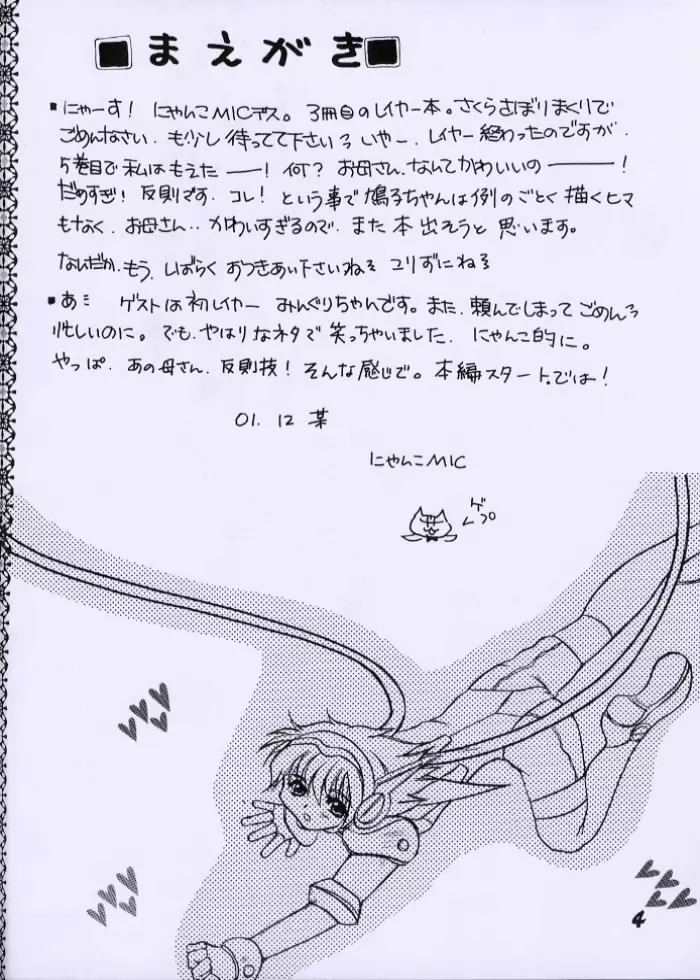 まえがき
▪にゃーす! にゃんこMICデス。3冊目のレイヤー本。さくらさぼりまくりで
ごめんなさい. も少し待ってて下さいろ いやー. レイヤー終わったのですが.
5巻目で私はもえた——! 何? お母さん. なんてかわいいの———!
だめすぎ! 反則です. コレ! という事で鳩子ちゃんは例のごとく描くヒマ
もなく. お母さん.. かわいすぎるので. また本出そうと思います。
なんだか. もう. しばらくおつきあい下さいね こりずにね
▪あ ゲストは初レイヤー みんぐりちゃんです。また. 頼んでしまってごめんろ
忙しいのに。でも. やはりなネタで笑っちゃいました. にゃんこ的に。
やっぱ. あの母さん. 反則技! そんな感じで。本編スタート. では!
01. 12 某
にゃんこMIC
ゲプ
4